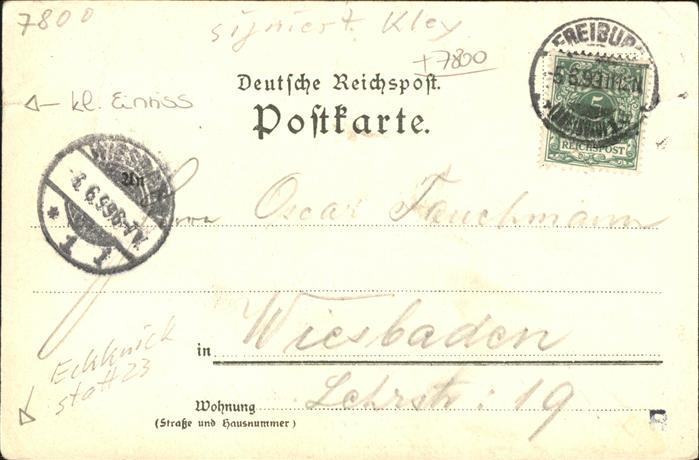 7800
signiert. Kley
+7800
Deutsche Reichspost.
Postkarte.
← kl. Einriss
FREIBURG
5
REICHSPOST
WIESBADEN
6.6.99 6-7V.
* 1 1
Herrn Oscar Fauchmann
in Wiesbaden
Eckknick
statt 23
Wohnung Lehrstr: 19
(Straße und Hausnummer)